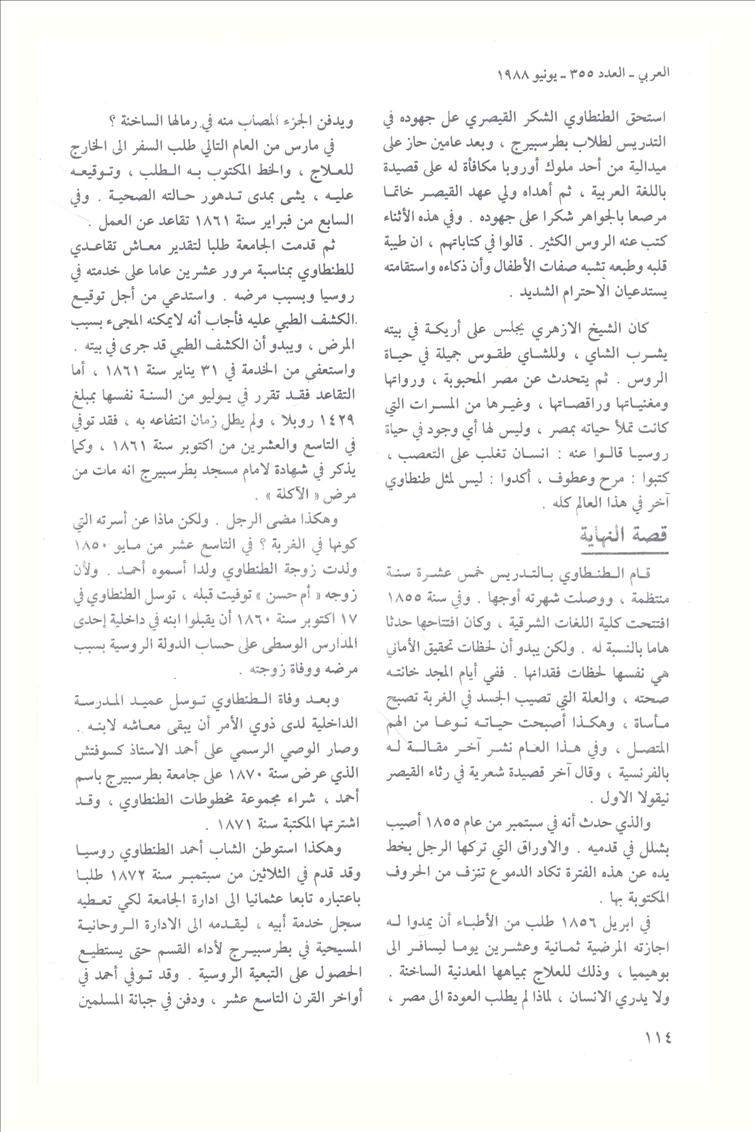 العربي - العدد ٣٥٥ - يونيو ١٩٨٨
استحق الطنطاوي الشكر القيصري عل جهوده في
التدريس لطلاب بطرسبيرج ، وبعد عامين حاز على
ميدالية من أحد ملوك أوروبا مكافأة له على قصيدة
باللغة العربية ، ثم أهداه ولي عهد القيصر خاتما
مرصعا بالجواهر شكرا على جهوده . وفي هذه الأثناء
كتب عنه الروس الكثير . قالوا في كتاباتهم ، ان طيبة
قلبه وطبعه تشبه صفات الأطفال وأن ذكاءه واستقامته
يستدعيان الاحترام الشديد .
كان الشيخ الازهري يجلس على أريكة في بيته
يشرب الشاي ، وللشاي طقوس جميلة في حياة
الروس . ثم يتحدث عن مصر المحبوبة ، ورواتها
ومغنياتها وراقصاتها ، وغيرها من المسرات التي
كانت تملأ حياته بمصر ، وليس لها أي وجود في حياة
روسيا قالوا عنه : انسان تغلب على التعصب ،
كتبوا : مرح وعطوف ، أكدوا : ليس لمثل طنطاوي
آخر في هذا العالم كله .
قصة النهاية
قام الطنطاوي بالتدريس خمس عشرة سنة
منتظمة ، ووصلت شهرته أوجها . وفي سنة ١٨٥٥
افتتحت كلية اللغات الشرقية ، وكان افتتاحها حدثا
هاما بالنسبة له . ولكن يبدو أن لحظات تحقيق الأماني
هي نفسها لحظات فقدانها . ففي أيام المجد خانته
صحته ، والعلة التي تصيب الجسد في الغربة تصبح
مأساة ، وهكذا أصبحت حياته نوعا من الهم
المتصل ، وفي هذا العام نشر آخر مقالة له
بالفرنسية ، وقال آخر قصيدة شعرية في رثاء القيصر
نيقولا الاول .
والذي حدث أنه في سبتمبر من عام ١٨٥٥ أصيب
بشلل في قدميه . والاوراق التي تركها الرجل بخط
يده عن هذه الفترة تكاد الدموع تنزف من الحروف
المكتوبة بها .
في ابريل ١٨٥٦ طلب من الأطباء أن يمدوا له
اجازته المرضية ثمانية وعشرين يوما ليسافر الى
بوهيميا ، وذلك للعلاج بمياهها المعدنية الساخنة .
ولا يدري الانسان ، لماذا لم يطلب العودة الى مصر ،
ويدفن الجزء المصاب منه في رمالها الساخنة ؟
في مارس من العام التالي طلب السفر الى الخارج
للعلاج ، والخط المكتوب به الطلب ، وتوقيعه
عليه ، يشى بمدى تدهور حالته الصحية . وفي
السابع من فبراير سنة ١٨٦١ تقاعد عن العمل .
ثم قدمت الجامعة طلبا لتقدير معاش تقاعدي
للطنطاوي بمناسبة مرور عشرين عاما على خدمته في
روسيا وبسبب مرضه . واستدعي من أجل توقيع
الكشف الطبي عليه فأجاب أنه لايمكنه المجىء بسبب
المرض ، ويبدو أن الكشف الطبي قد جرى في بيته .
واستعفي من الخدمة في ٣١ يناير سنة ١٨٦١ ، أما
التقاعد فقد تقرر في يوليو من السنة نفسها بمبلغ
١٤٢٩ روبلا ، ولم يطل زمان انتفاعه به ، فقد توفي
في التاسع والعشرين من اكتوبر سنة ١٨٦١ ، وكما
يذكر في شهادة لامام مسجد بطرسبيرج انه مات من
مرض « الآكلة » .
وهكذا مضى الرجل . ولكن ماذا عن أسرته التي
كونها في الغربة ؟ في التاسع عشر من مايو ١٨٥٠
ولدت زوجة الطنطاوي ولدا أسموه أحمد . ولأن
زوجه « أم حسن » توفيت قبله ، توسل الطنطاوي في
١٧ اكتوبر سنة ١٨٦٠ أن يقبلوا ابنه في داخلية إحدى
المدارس الوسطى على حساب الدولة الروسية بسبب
مرضه ووفاة زوجته .
وبعد وفاة الطنطاوي توسل عميد المدرسة
الداخلية لدى ذوي الأمر أن يبقى معاشه لابنه .
وصار الوصي الرسمي على أحمد الاستاذ كسوفتش
الذي عرض سنة ١٨٧٠ على جامعة بطرسبيرج باسم
أحمد ، شراء مجموعة مخطوطات الطنطاوي ، وقد
اشترتها المكتبة سنة ١٨٧١ .
وهكذا استوطن الشاب أحمد الطنطاوي روسيا
وقد قدم في الثلاثين من سبتمبر سنة ١٨٧٢ طلبا
باعتباره تابعا عثمانيا الى ادارة الجامعة لكي تعطيه
سجل خدمة أبيه ، ليقدمه الى الادارة الروحانية
المسيحية في بطرسبيرج لأداء القسم حتى يستطيع
الحصول على التبعية الروسية . وقد توفي أحمد في
أواخر القرن التاسع عشر ، ودفن في جبانة المسلمين
١١٤